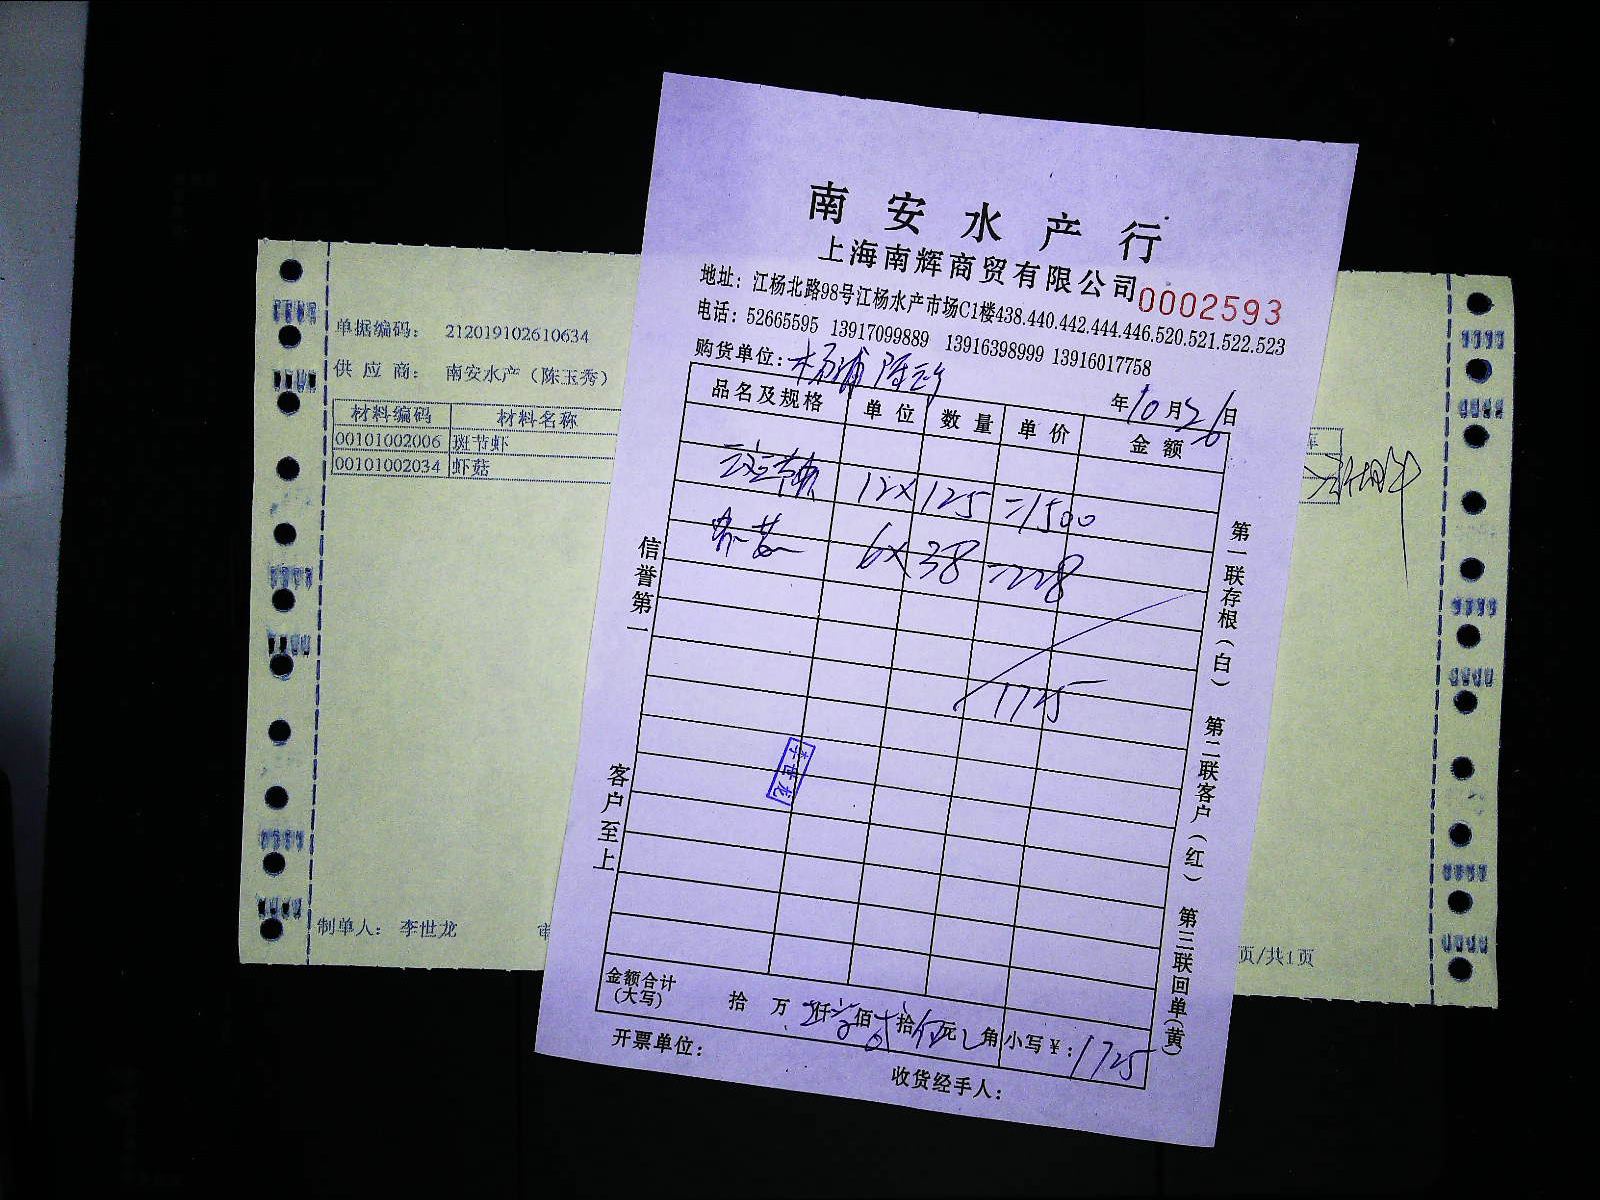 南安水产行
上海南辉商贸有限公司
0002593
地址：江杨北路98号江杨水产市场C1楼438.440.442.444.446.520.521.522.523
电话：52665595 13917099889 13916398999 13916017758
购货单位：杨浦
年10月26日
品名及规格 单位 数量 单价 金额
12×125=1500
6×38=228
1725
李世龙
金额合计(大写) 拾 万 仟 佰 拾 元 角 小写¥：1725
开票单位：
收货经手人：
信誉第一
客户至上
第一联存根（白） 第二联客户（红） 第三联回单（黄）
单据编码： 212019102610634
供应商： 南安水产（陈玉秀）
材料编码 材料名称
00101002006 斑节虾
00101002034 虾菇
制单人： 李世龙
页/共1页